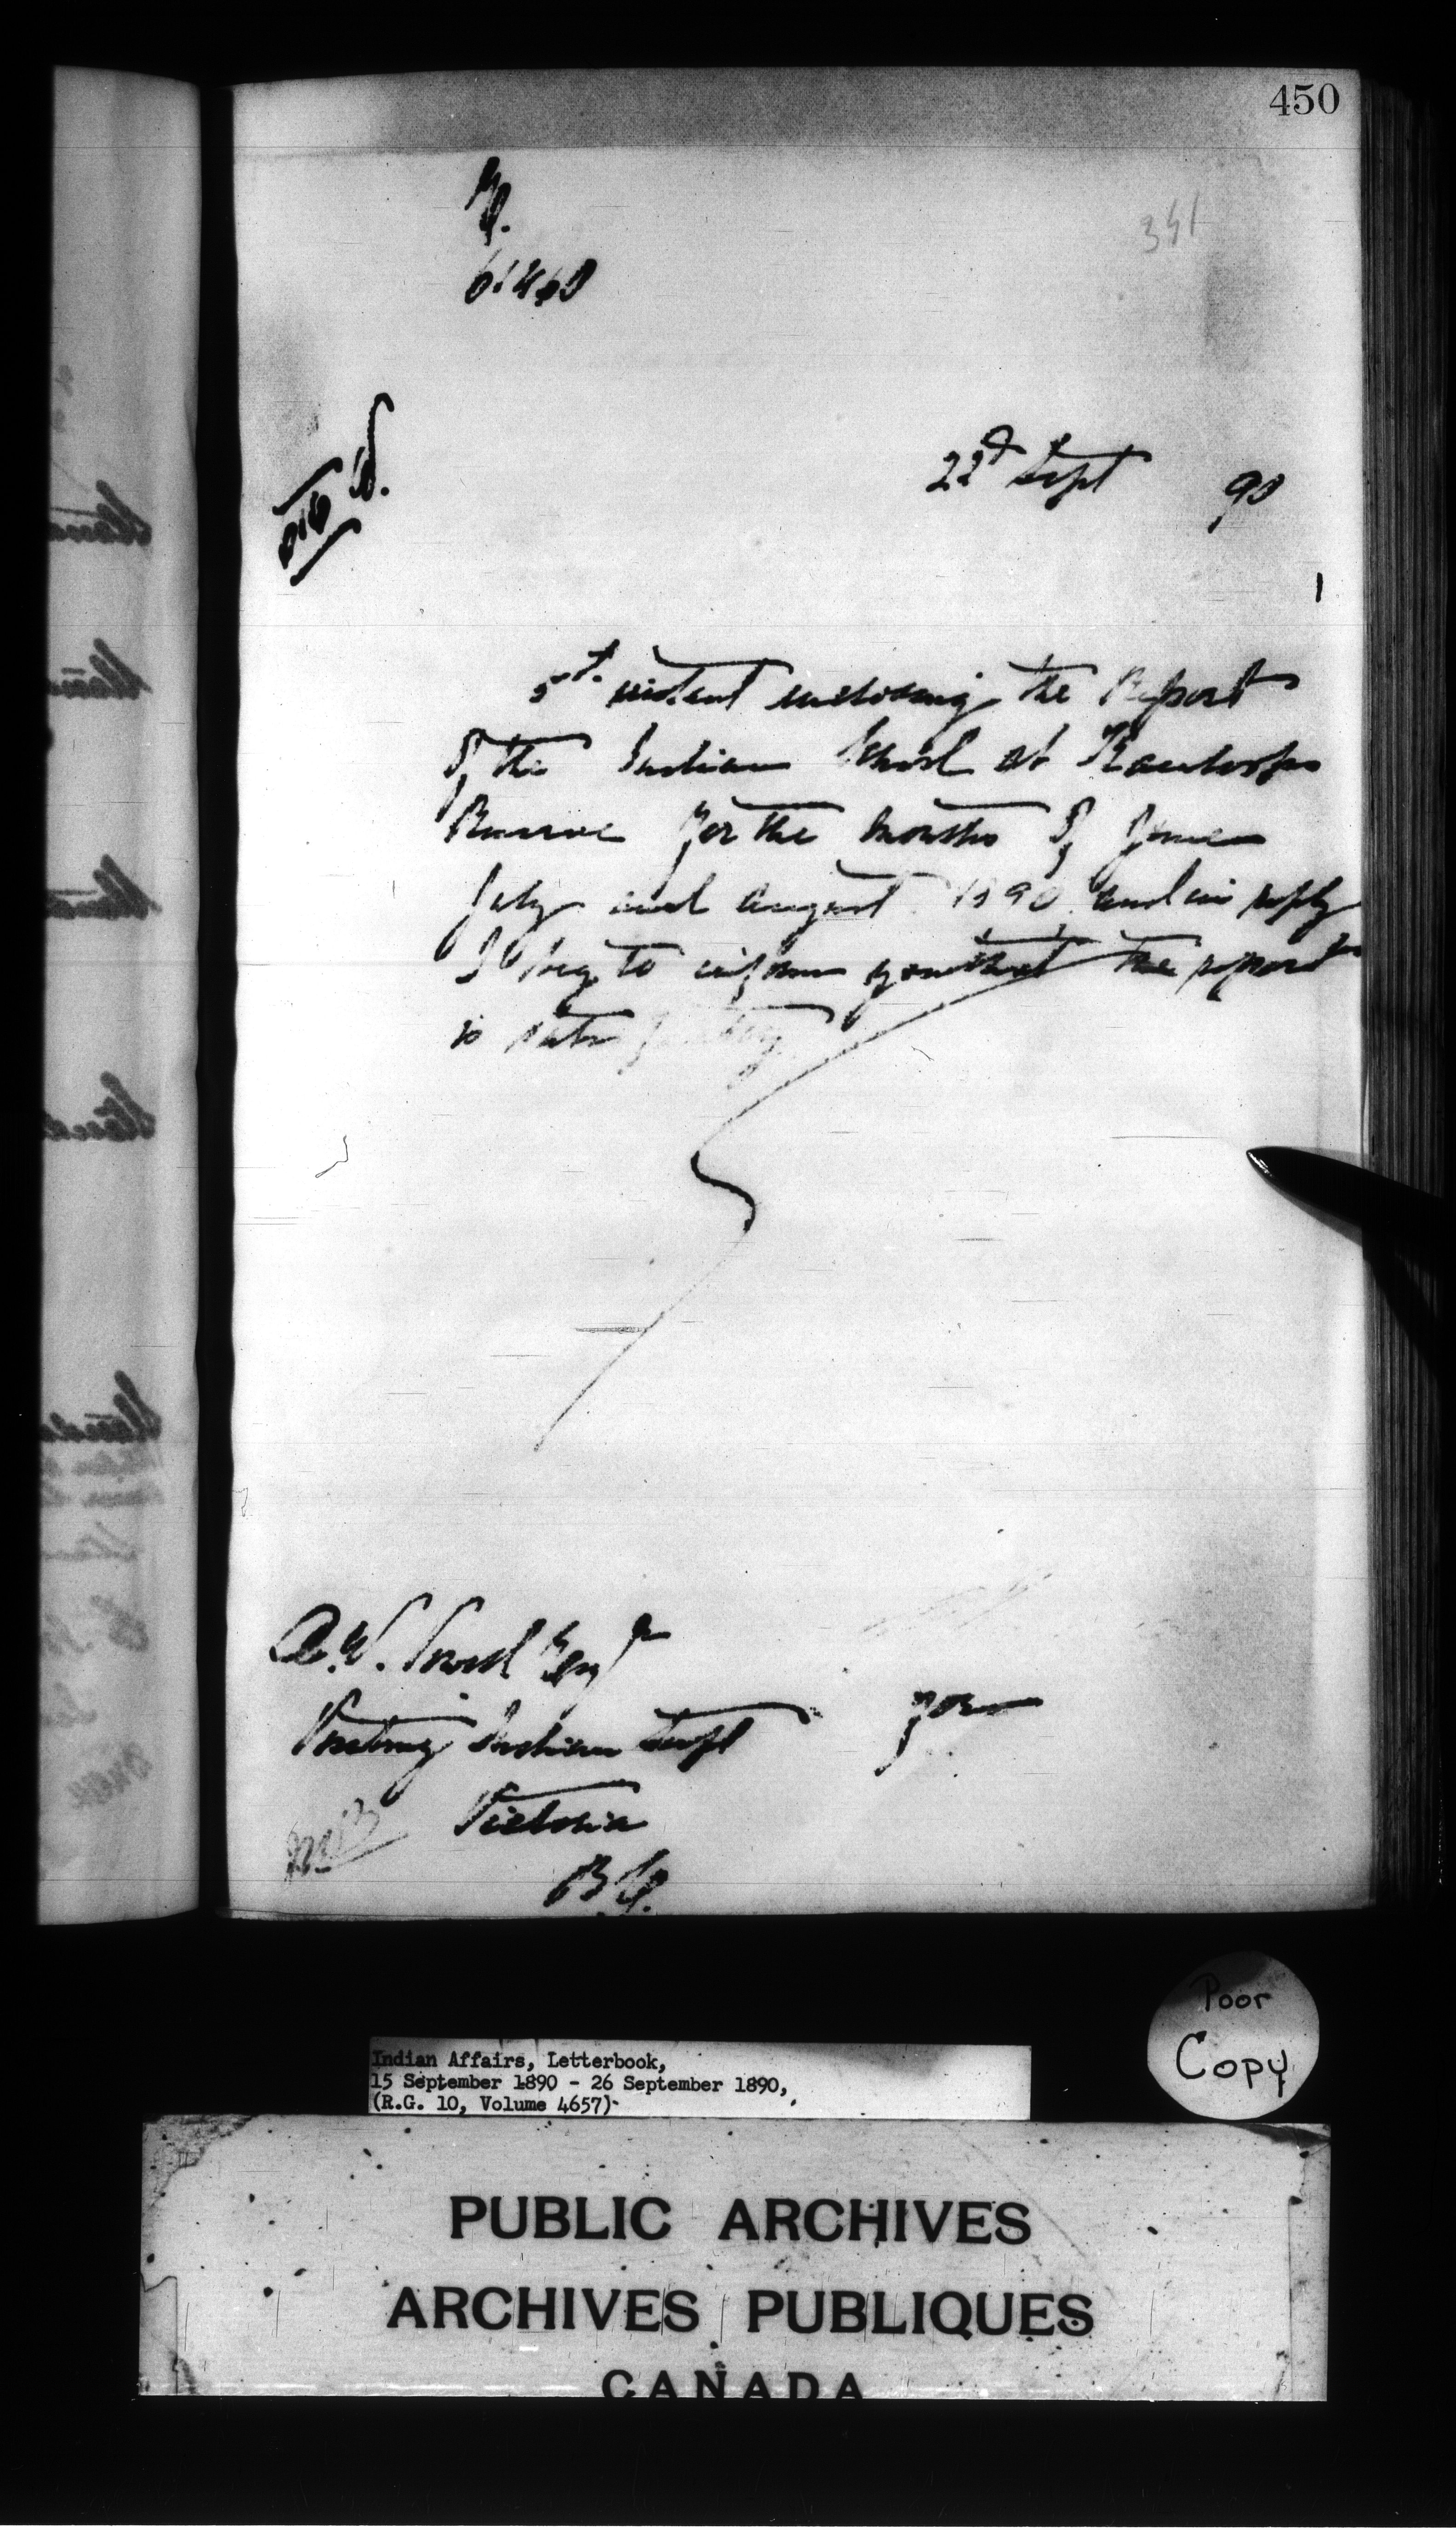 450
341
22d Sept 90
5th instant enclosing the Report
of the Indian School at Kamloops
Reserve for the months of June
July and August 1890 and in reply
I beg to inform you that the report
is satisfactory
A.W. Vowell Esqr
Visiting Indian Supt
for
Victoria
B.C.
Poor
Copy
Indian Affairs, Letterbook,
15 September 1890 - 26 September 1890,
(R.G. 10, Volume 4657)
PUBLIC ARCHIVES
ARCHIVES PUBLIQUES
CANADA